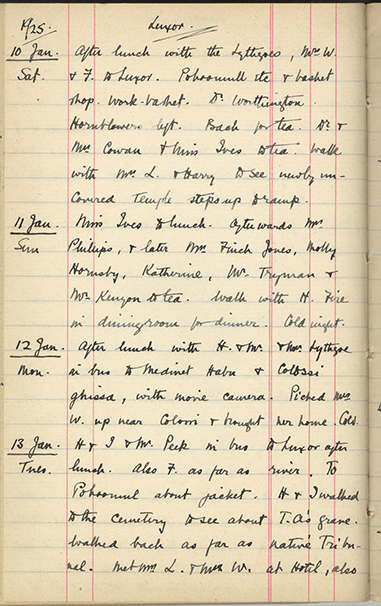 1925. Luxor.
10 Jan. After lunch with the Lythgoes, Mrs W.
Sat. & F. to Luxor. Pohoomull etc & basket
shop. Work-basket. Dr. Worthington
Hornblowers left. Back for tea. Dr. &
Mrs Cowan & Miss Ives to tea. Walk
with Mrs L. & Harry to see newly un-
covered Temple steps up to ramp.
11 Jan. Miss Ives to lunch. Afterwards Mrs
Sun Phillips, & later Mrs Finch Jones, Molly
Hornsby, Katherine, Mr. &
Mr. Kenyon to tea. Walk with H. Fire
in diningroom for dinner. Cold night.
12 Jan. After lunch with H. & Mr. & Mrs Lythgoe
Mon. in bus to Medinet Habu & Colossi
, with movie camera. Picked Mrs
W. up near Colossi & brought her home. Cold.
13 Jan. H & I & Mr. Peck in bus to Luxor after
Tues. lunch. Also F. as far as river. To
Pohoomul about jacket. H & I walked
to the cemetery to see about T.A's grave.
Walked back as far as native Tribu-
nal. Met Mrs L. & Mrs W. at Hotel, also